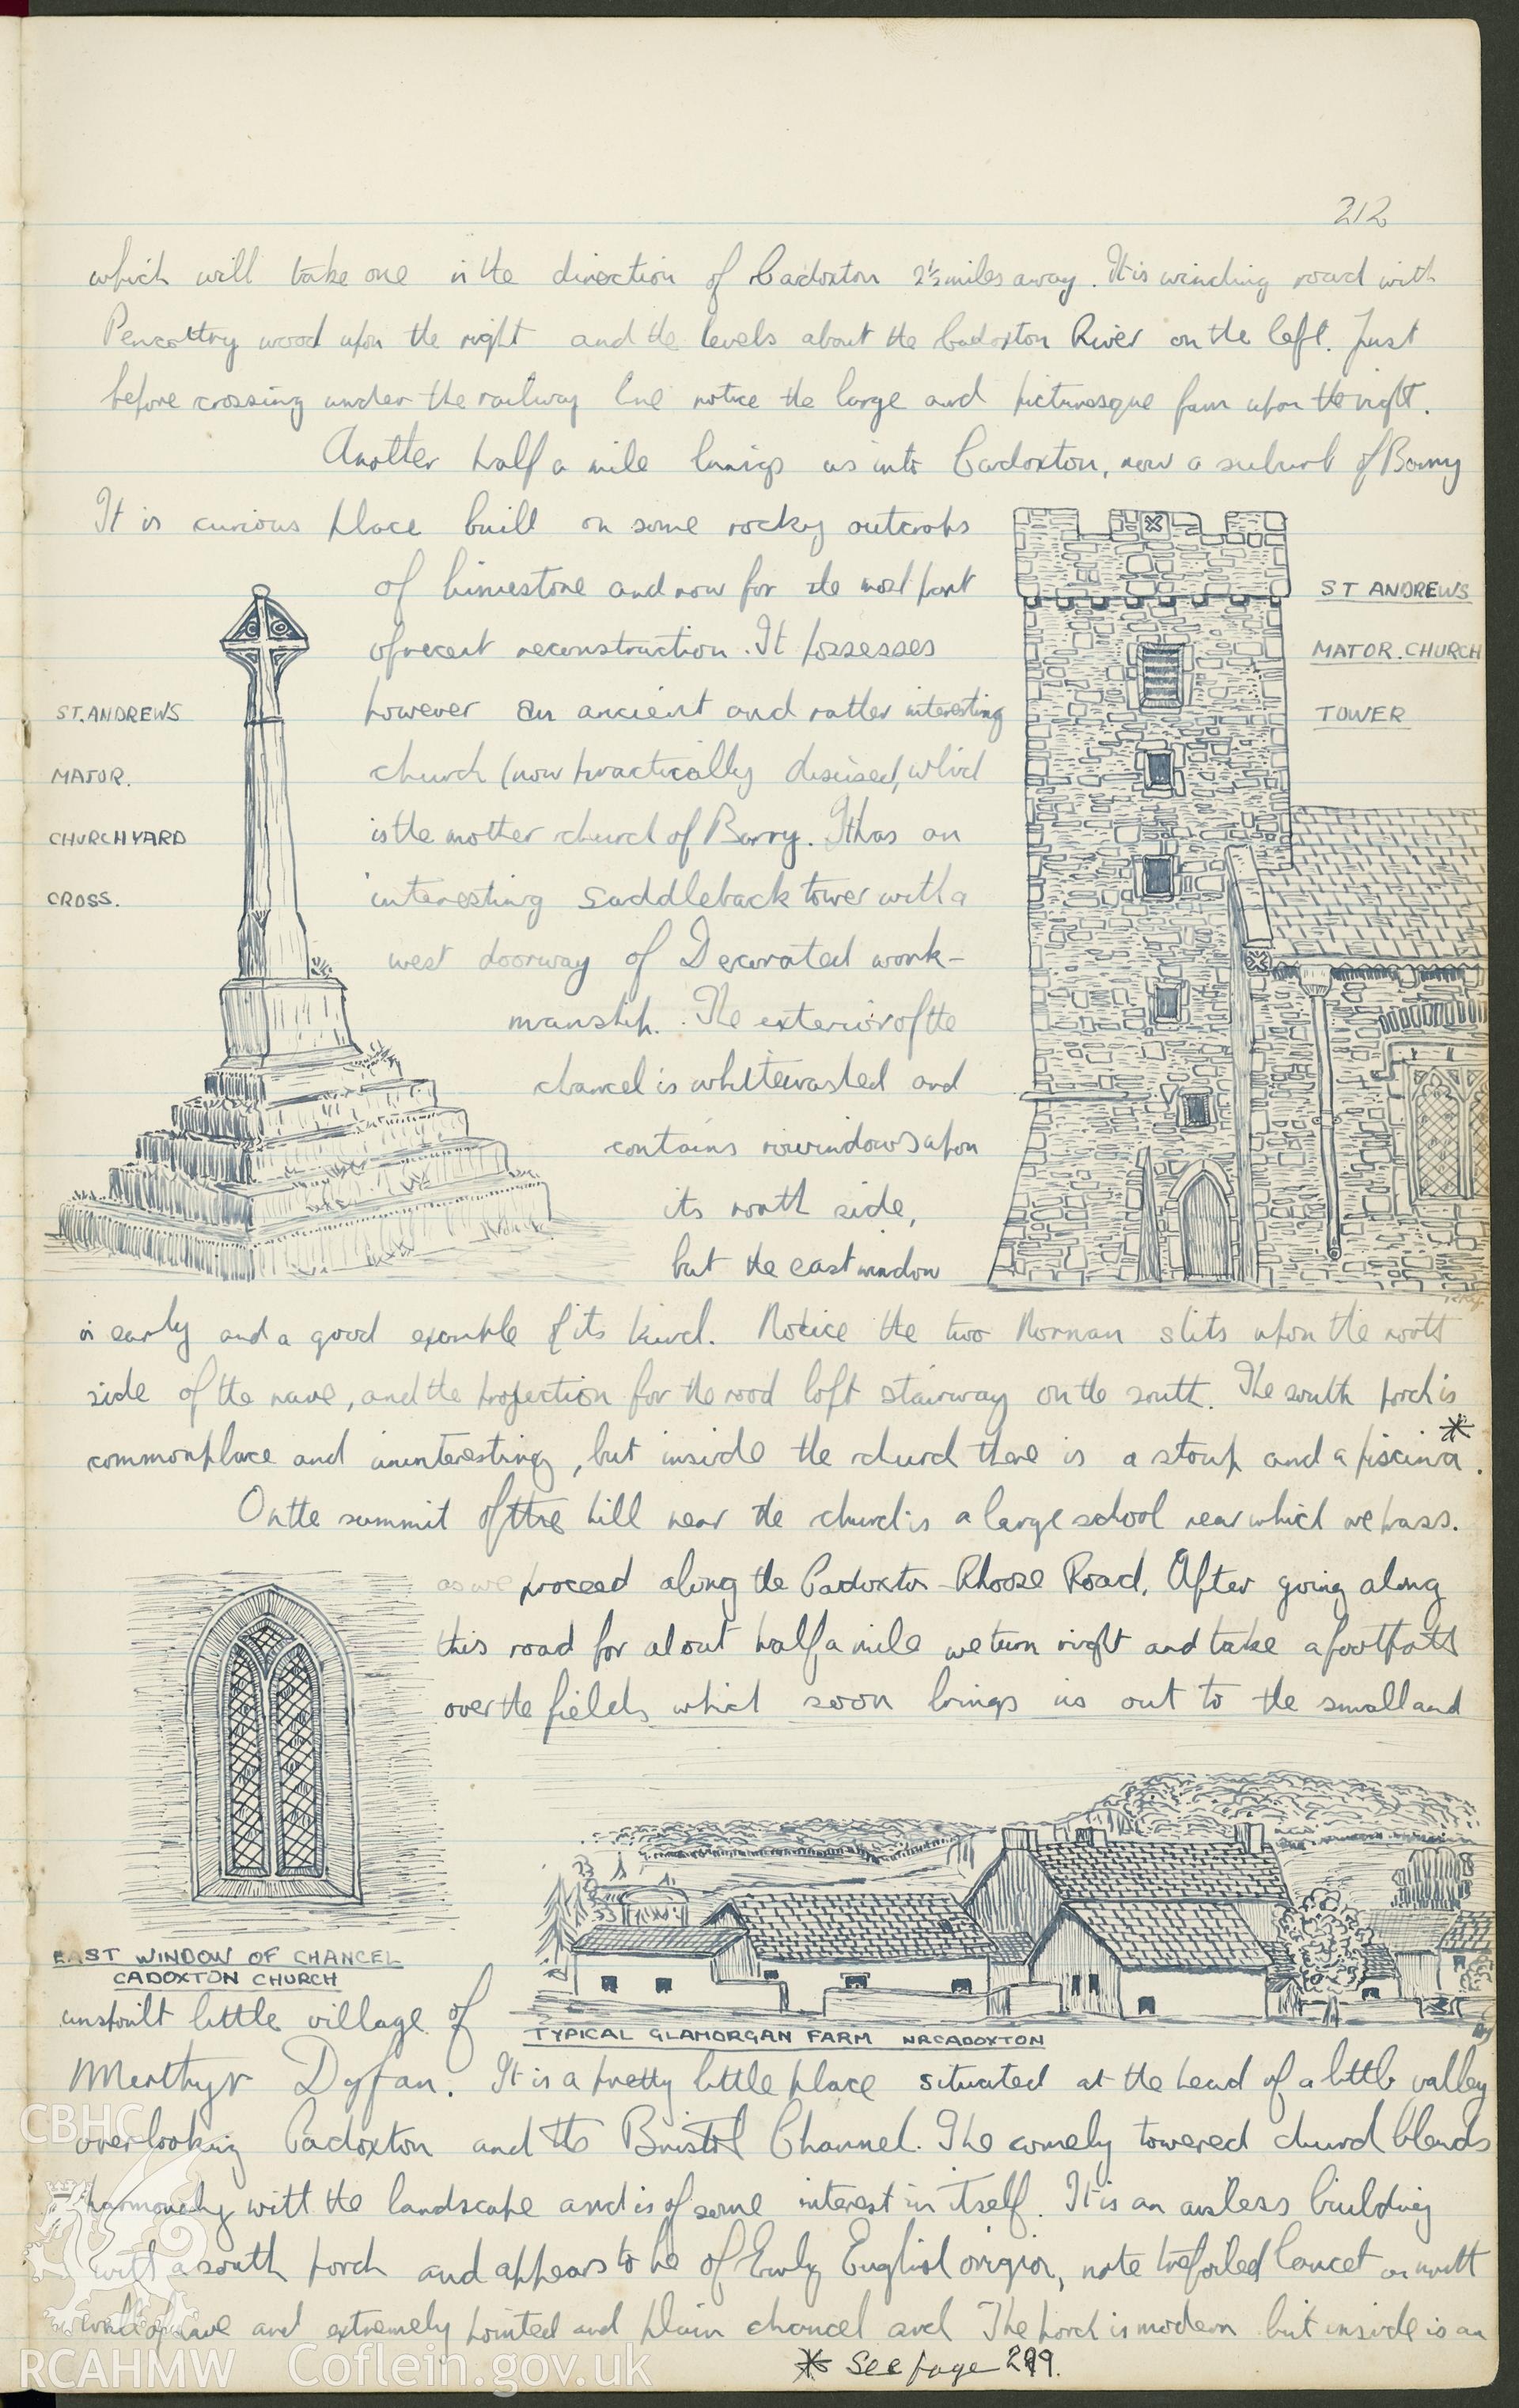 212
which will take one in the direction of Cadoxton 2½ miles away. It is winding road with
Pencottry wood upon the right and the levels about the Cadoxton River on the left. Just
before crossing under the railway line notice the large and picturesque farm upon the right.
Another half a mile brings us into Cadoxton, now a suburb of Barry
It is curious place built on some rocky outcrops
of limestone and now for the most part
of recent reconstruction. It possesses
however an ancient and rather interesting
church (now practically disused, which
is the mother church of Barry. It has an
interesting saddleback tower with a
west doorway of Decorated work-
manship. The exterior of the
chancel is whitewashed and
contains no windows upon
its north side,
but the east window
ST. ANDREWS
MAJOR.
CHURCHYARD
CROSS.
ST ANDREWS
MAJOR. CHURCH
TOWER
is early and a good example of its kind. Notice the two Norman slits upon the north
side of the nave, and the projection for the rood loft stairway on the south. The south porch is
commonplace and uninteresting, but inside the church there is a stoup and a piscina*.
On the summit of the hill near the church is a large school near which we pass.
as we proceed along the Cadoxton-Rhoose Road. After going along
this road for about half a mile we turn right and take a footpath
over the fields which soon brings us out to the small and
EAST WINDOW OF CHANCEL
CADOXTON CHURCH
TYPICAL GLAMORGAN FARM NR CADOXTON
unspoilt little village of
Merthyr Dyfan. It is a pretty little place situated at the head of a little valley
overlooking Cadoxton and the Bristol Channel. The comely towered church blends
harmoniously with the landscape and is of some interest in itself. It is an aisless building
with a south porch and appears to be of Early English origin, note trefoiled lancet on north
wall of nave and extremely pointed and plain chancel arch The porch is modern but inside is an
* See page 299.
CBHC
RCAHMW Coflein.gov.uk